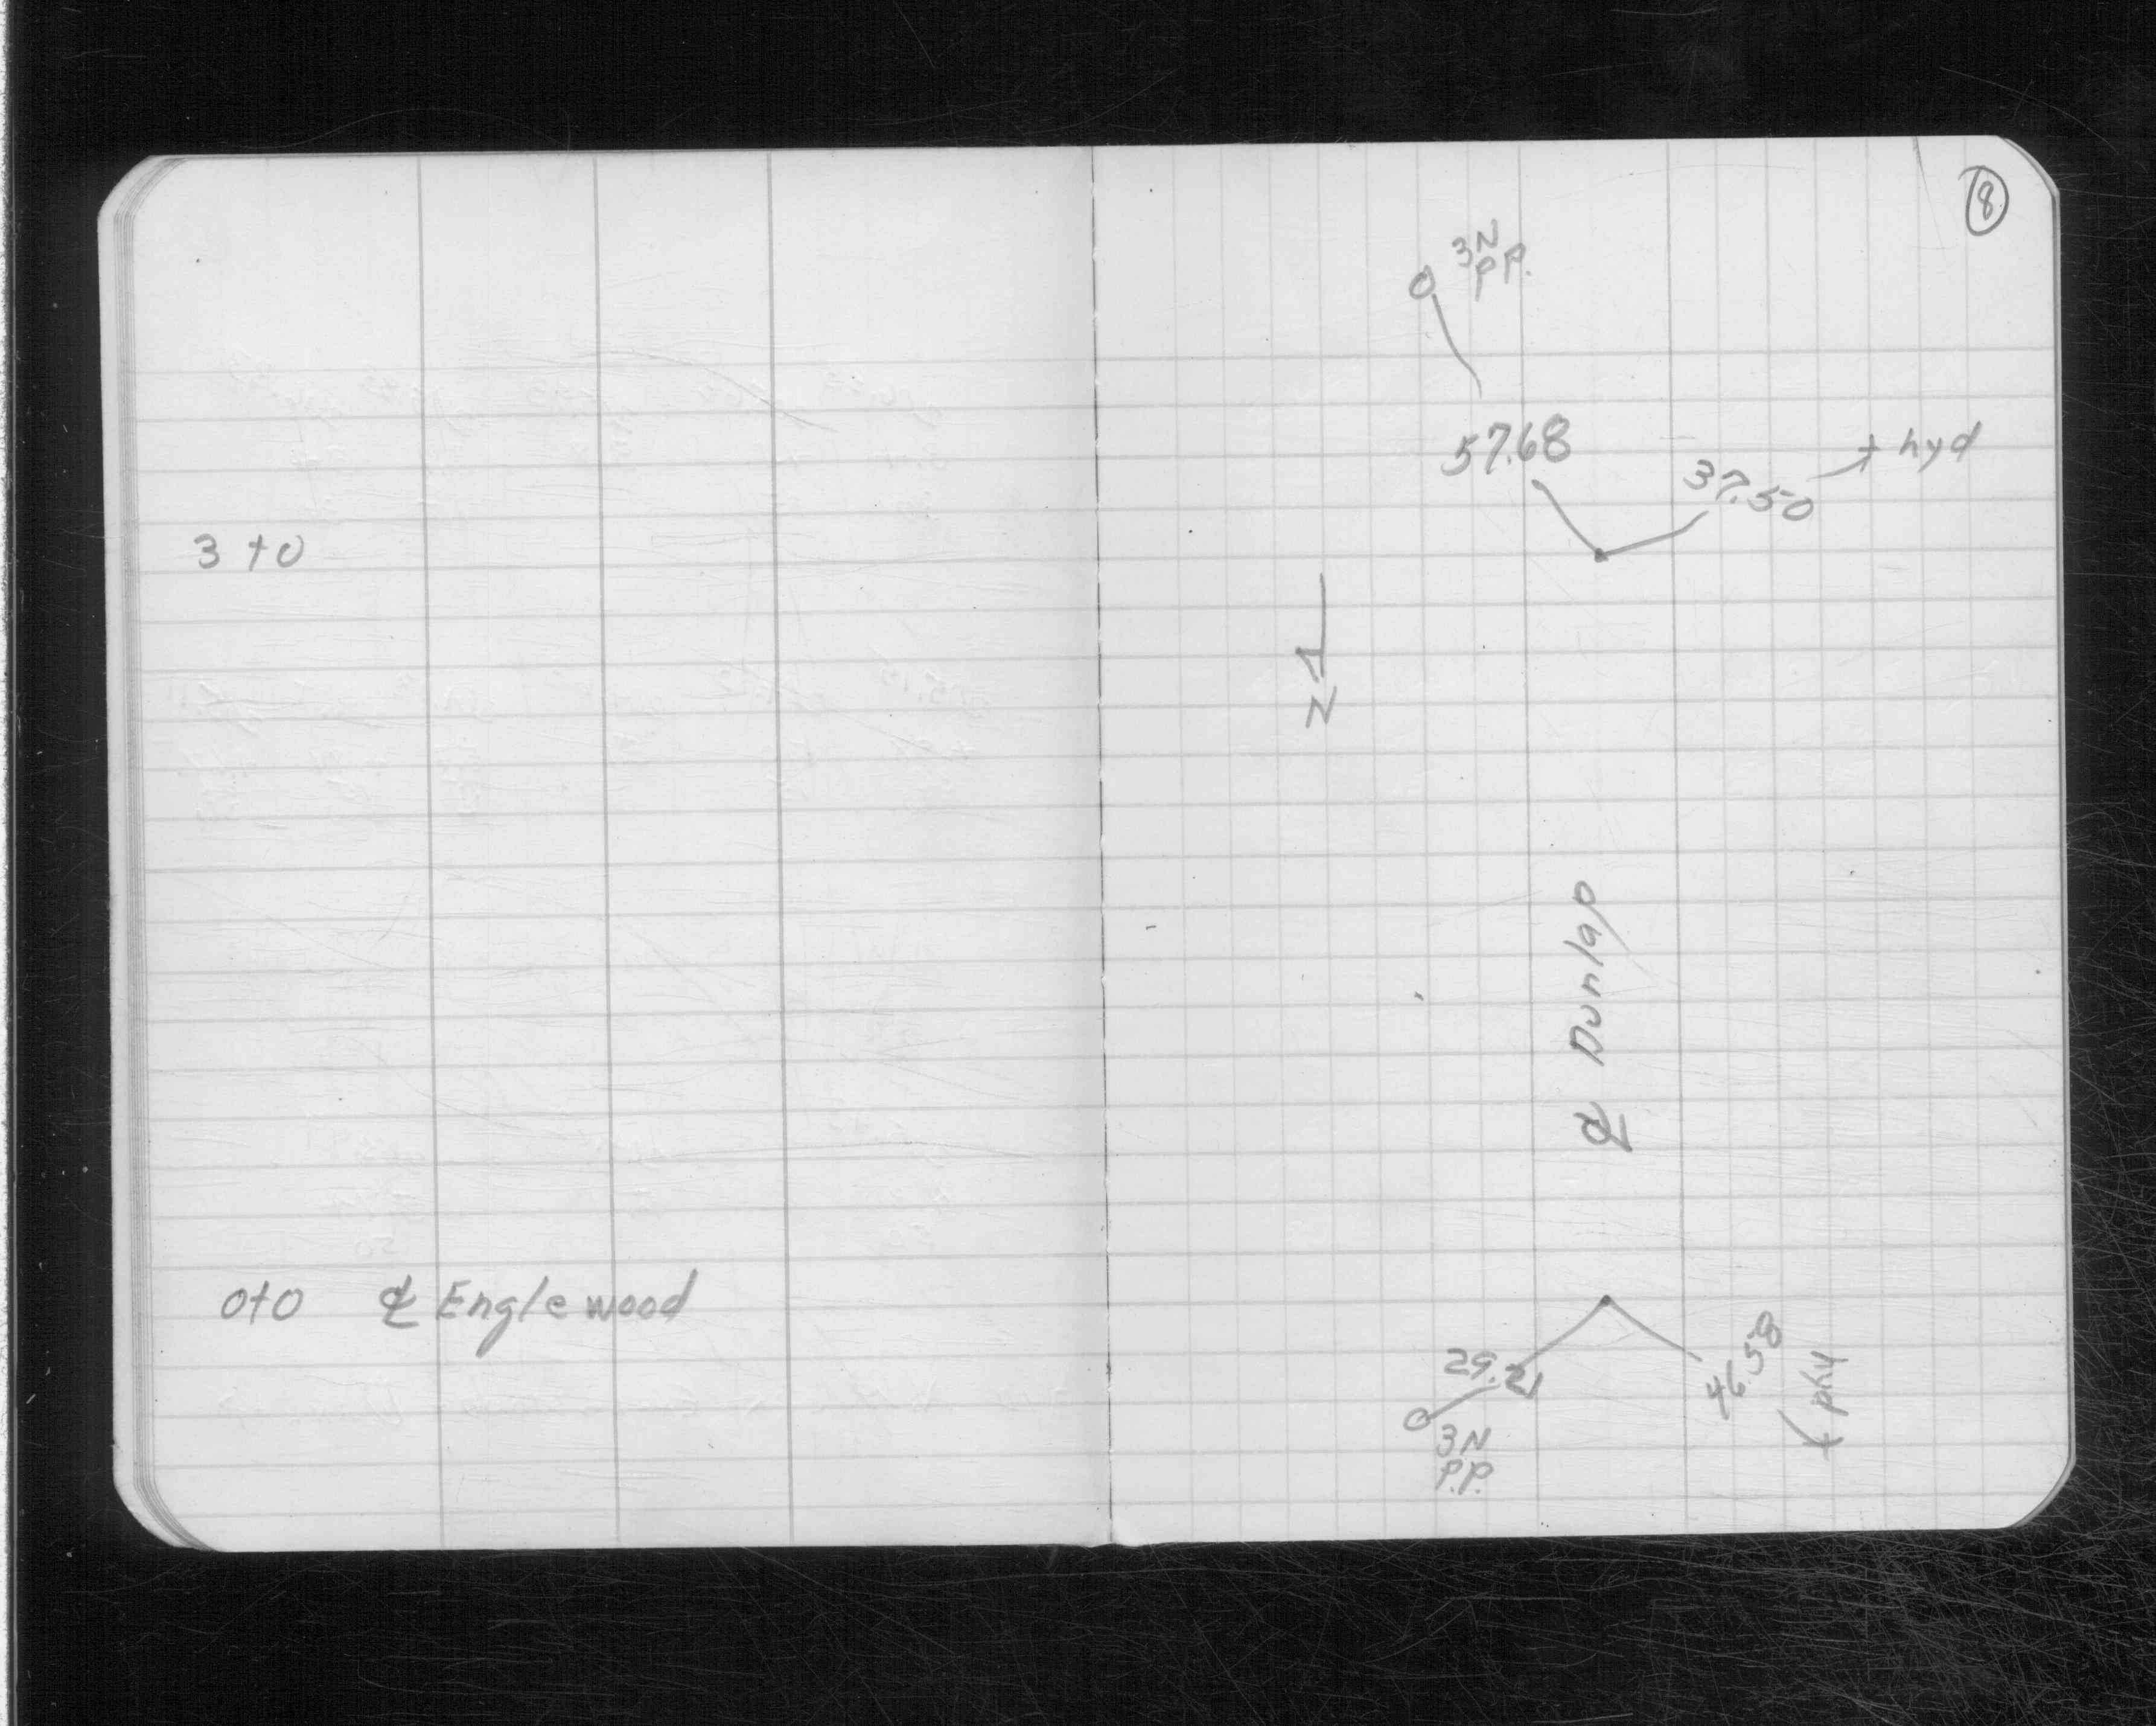 8
3N
P.P.
57.68
37.50
hyd
3+0
N
℄ Dunlap
0+0 ℄ Englewood
29.21
46.58
hyd
3N
P.P.